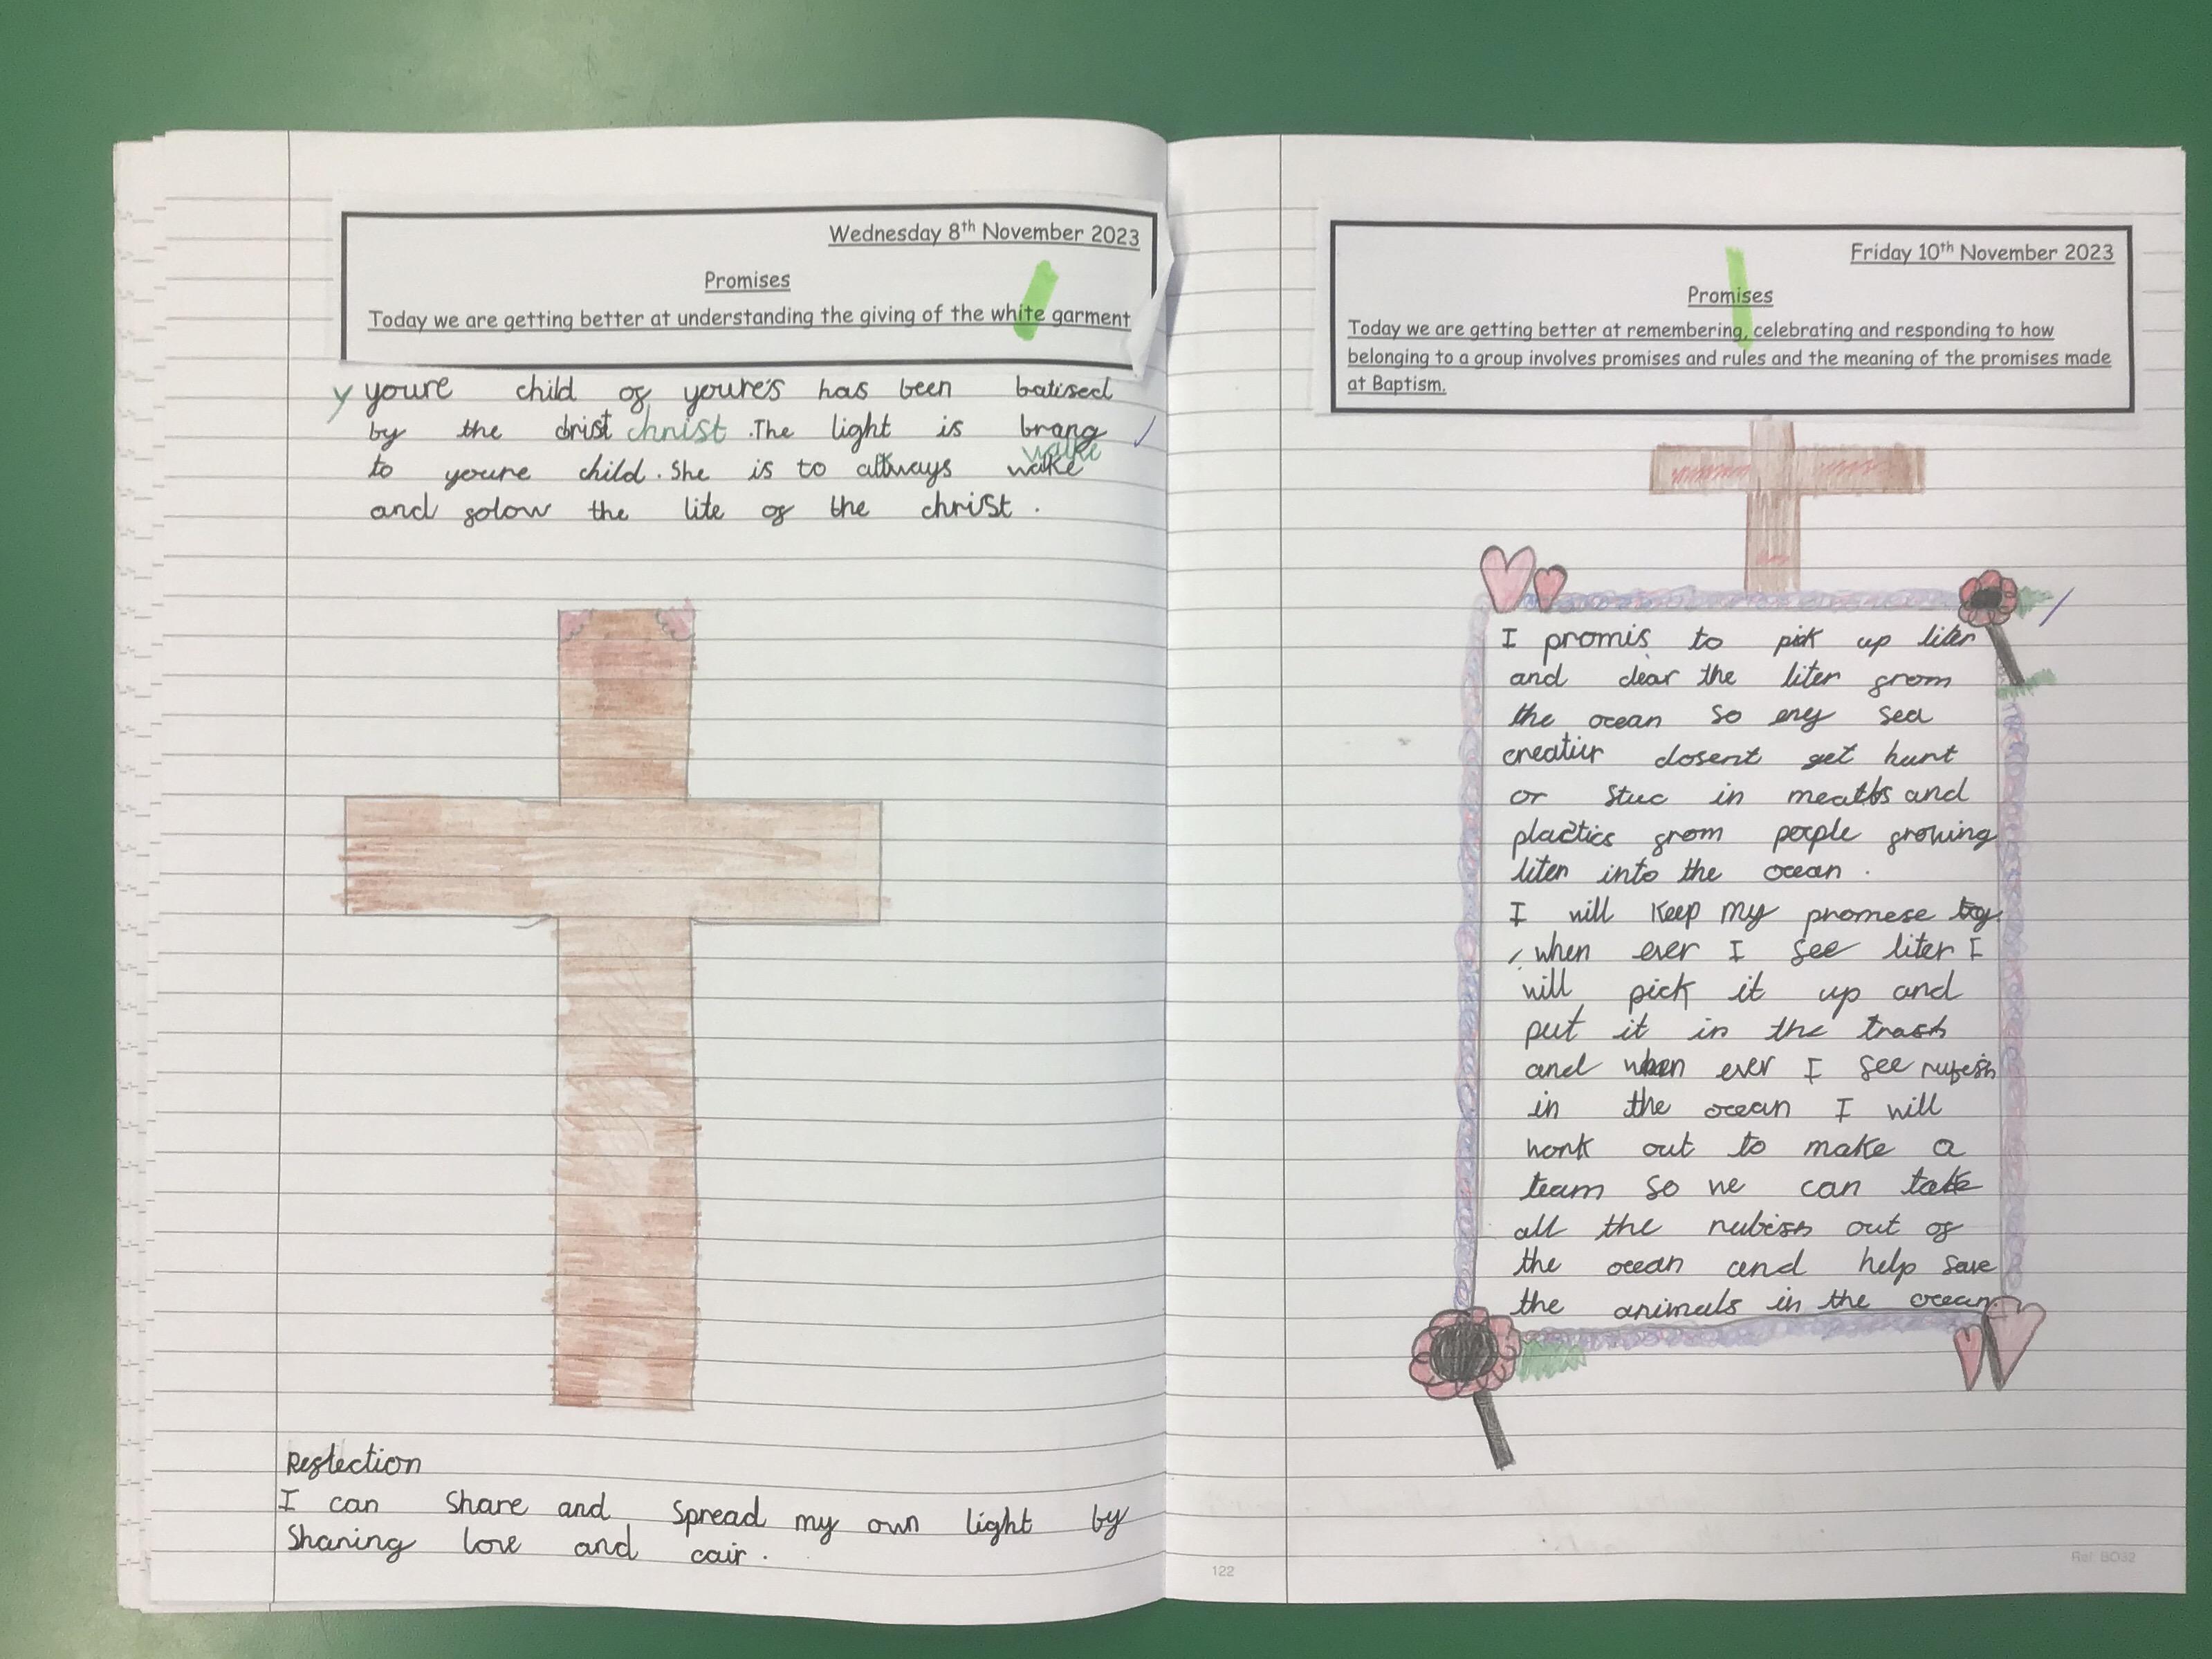 Wednesday 8th November 2023
Promises
Today we are getting better at understanding the giving of the white garment
y youre child of youre's has been batised
by the christ .The light is brang
walke
to youre child. She is to allways
and folow the lite of the christ .
Reflection
I can share and spread my own light by
Sharing love and cair.
Friday 10th November 2023
Promises
Today we are getting better at remembering, celebrating and responding to how
belonging to a group involves promises and rules and the meaning of the promises made
at Baptism.
I promis to pick up liter
and clear the liter from
the ocean so eny sea
creatiur dosent get hurt
or stuc in and
plactics from people frowing
liter into the ocean .
I will keep my promese
when ever I see liter I
will pick it up and
put it in the trash
and when ever I see rubish
in the ocean I will
work out to make a
team so we can take
all the rubish out of
the ocean and help save
the animals in the ocean.
122
Ref. BO32